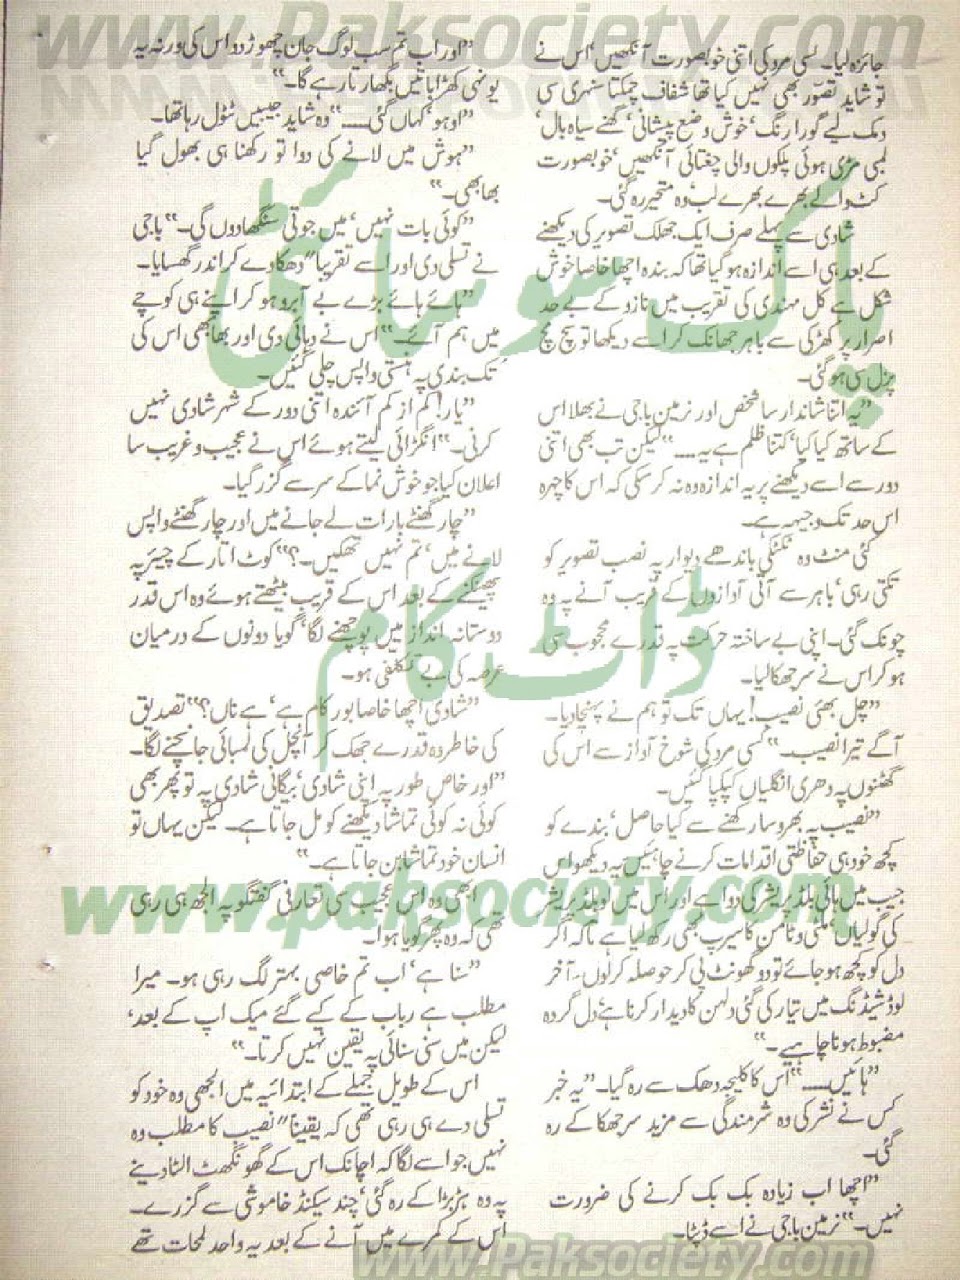 www.Paksociety.com
جائزہ لیا۔ کسی مرد کی اتنی خوبصورت آنکھیں، اس نے
تو شاید تصور بھی نہیں کیا تھا شفاف چمکتا سنہری سی
دمک لیے گورا رنگ، خوش وضع پیشانی، گھنے سیاہ بال،
لمبی مڑی ہوئی پلکوں والی چغتائی آنکھیں، خوبصورت
کٹ والے بھرے بھرے لب، وہ متحیر رہ گئی۔
شادی سے پہلے صرف ایک جھلک تصویر کی دیکھنے
کے بعد ہی اسے اندازہ ہو گیا تھا کہ بندہ اچھا خاصا خوش
شکل ہے کل مہندی کی تقریب میں نازو کے بے حد
اصرار پر کھڑکی سے باہر جھانک کر اسے دیکھا تو سچ مچ
پزل سی ہو گئی۔
”یہ اتنا شاندار سا شخص اور نرمین باجی نے بھلا اس
کے ساتھ کیا کیا، کتنا ظلم ہے یہ۔۔۔۔“ لیکن تب بھی اتنی
دور سے اسے دیکھنے پر یہ اندازہ وہ نہ کر سکی کہ اس کا چہرہ
اس حد تک وجیہہ ہے۔
کئی منٹ وہ ٹکٹکی باندھے دیوار پہ نصب تصویر کو
تکتی رہی، باہر سے آتی آوازوں کے قریب آنے پہ وہ
چونک گئی۔ اپنی بے ساختہ حرکت پہ قدرے محجوب سی
ہو کر اس نے سر جھکا لیا۔
”چل بھئی نصیب! یہاں تک تو ہم نے پہنچا دیا۔
آگے تیرا نصیب۔“ کسی مرد کی شوخ آواز سے اس کی
گھٹنوں پہ دھری انگلیاں کپکپا گئیں۔
”نصیب پہ بھروسا رکھنے سے کیا حاصل، بندے کو
کچھ خود ہی حفاظتی اقدامات کرنے چاہئیں۔ یہ دیکھو اس
جیب میں ہائی بلڈ پریشر کی دوا ہے اور اس میں لو بلڈ پریشر
کی گولیاں، ملٹی وٹامن کا سیرپ بھی رکھ لیا ہے تاکہ اگر
دل کو کچھ ہو جائے تو دو گھونٹ پی کر حوصلہ کر لوں۔ آخر
لوڈ شیڈنگ میں تیار کی گئی دلہن کا دیدار کرنا ہے، دل گردہ
مضبوط ہونا چاہیے۔“
”ہائیں۔۔۔۔“ اس کا کلیجہ دھک سے رہ گیا۔ ”یہ خبر
کس نے نشر کی وہ شرمندگی سے مزید سر جھکا کے رہ
گئی۔
”اچھا اب زیادہ بک بک کرنے کی ضرورت
نہیں۔“ نرمین باجی نے اسے ڈپٹا۔
”اور اب تم سب لوگ جان چھوڑ دو اس کی ورنہ یہ
یونہی کھڑا باتیں بگھارتا رہے گا۔“
”اوہو، کہاں گئی۔۔۔۔“ وہ شاید جیبیں ٹٹول رہا تھا۔
”ہوش میں لانے کی دوا تو رکھنا ہی بھول گیا
بھابھی۔“
”کوئی بات نہیں، میں جوتی سنگھا دوں گی۔“ باجی
نے تسلی دی اور اسے تقریباً دھکا دے کر اندر گھسایا۔
”ہائے ہائے بڑے بے آبرو ہو کر اپنے ہی کوچے
میں ہم آئے۔“ اس نے دہائی دی اور بھابھی اس کی
تک بندی پہ ہنستی واپس چلی گئیں۔
”یار! کم از کم آئندہ اتنی دور کے شہر شادی نہیں
کرنی۔“ انگڑائی لیتے ہوئے اس نے عجیب و غریب سا
اعلان کیا جو خوش نما کے سر سے گزر گیا۔
”چار گھنٹے بارات لے جانے میں اور چار گھنٹے واپس
لانے میں، تم نہیں تھکیں۔؟“ کوٹ اتار کے چیئر پہ
پھینکنے کے بعد اس کے قریب بیٹھتے ہوئے وہ اس قدر
دوستانہ انداز میں پوچھنے لگا، گویا دونوں کے درمیان
عرصہ کی بے تکلفی ہو۔
”شادی اچھا خاصا بور کام ہے، ہے ناں؟“ تصدیق
کی خاطر وہ قدرے جھک کر آنچل کی لمبائی جانچنے لگا۔
”اور خاص طور پہ اپنی شادی، بیگانی شادی پہ تو پھر بھی
کوئی نہ کوئی تماشا دیکھنے کو مل جاتا ہے۔ لیکن یہاں تو
انسان خود تماشا بن جاتا ہے۔“
ابھی وہ اس عجب سی تعارفی گفتگو پہ الجھ ہی رہی
تھی کہ وہ پھر گویا ہوا۔
”سنا ہے، اب تم خاصی بہتر لگ رہی ہو۔ میرا
مطلب ہے رباب کے کیے گئے میک اپ کے بعد،
لیکن میں سنی سنائی پہ یقین نہیں کرتا۔“
اس کے طویل جملے کے ابتدائیہ میں الجھی وہ خود کو
تسلی دے ہی رہی تھی کہ یقیناً نصیب کا مطلب وہ
نہیں جو اسے لگا کہ اچانک اس کے گھونگھٹ الٹا دینے
پہ وہ ہڑبڑا کے رہ گئی، چند سیکنڈ خاموشی سے گزرے۔
اس کے کمرے میں آنے کے بعد یہ واحد لمحات تھے
پاک سوسائٹی
ڈاٹ کام
www.paksociety.com
www.Paksociety.com